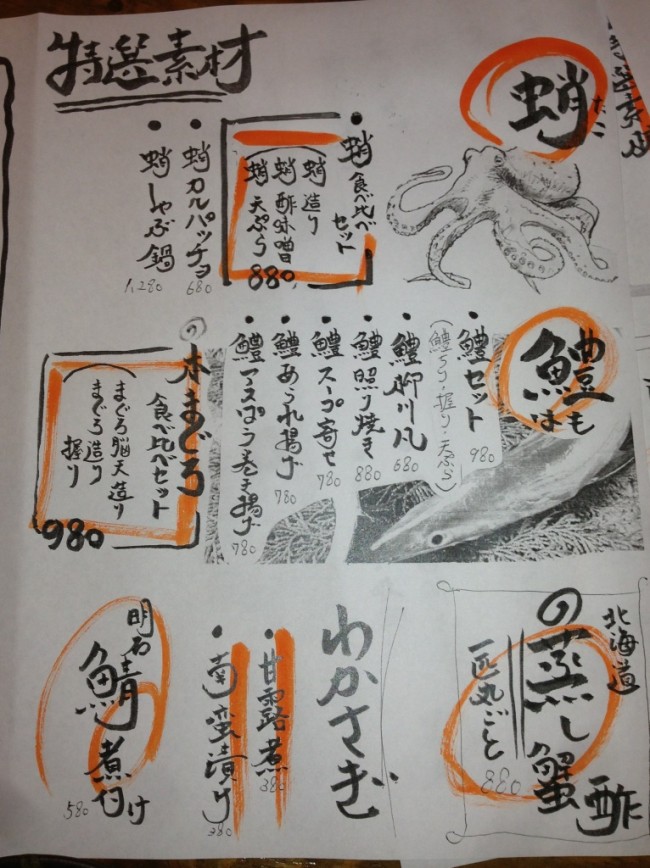 特選素材
蛸
たこ
• 蛸食べ比べ
セット
蛸造り
蛸酢味噌
蛸天ぷら
880
• 蛸カルパッチョ
680
• 蛸しゃぶ鍋
1,280
鱧
はも
• 鱧セット
(鱧ちり・握り・天ぷら)
980
• 鱧柳川風
680
• 鱧照り焼き
880
• 鱧スープ寄せ
780
• 鱧あられ揚げ
780
• 鱧アスパラ巻き揚げ
780
の本まぐろ
食べ比べセット
まぐろ脳天造り
まぐろ造り
握り
980
北海道
の蒸し蟹酢
一匹丸ごと
880
わかさぎ
• 甘露煮
380
• 南蛮漬け
380
明石鯖煮付け
580